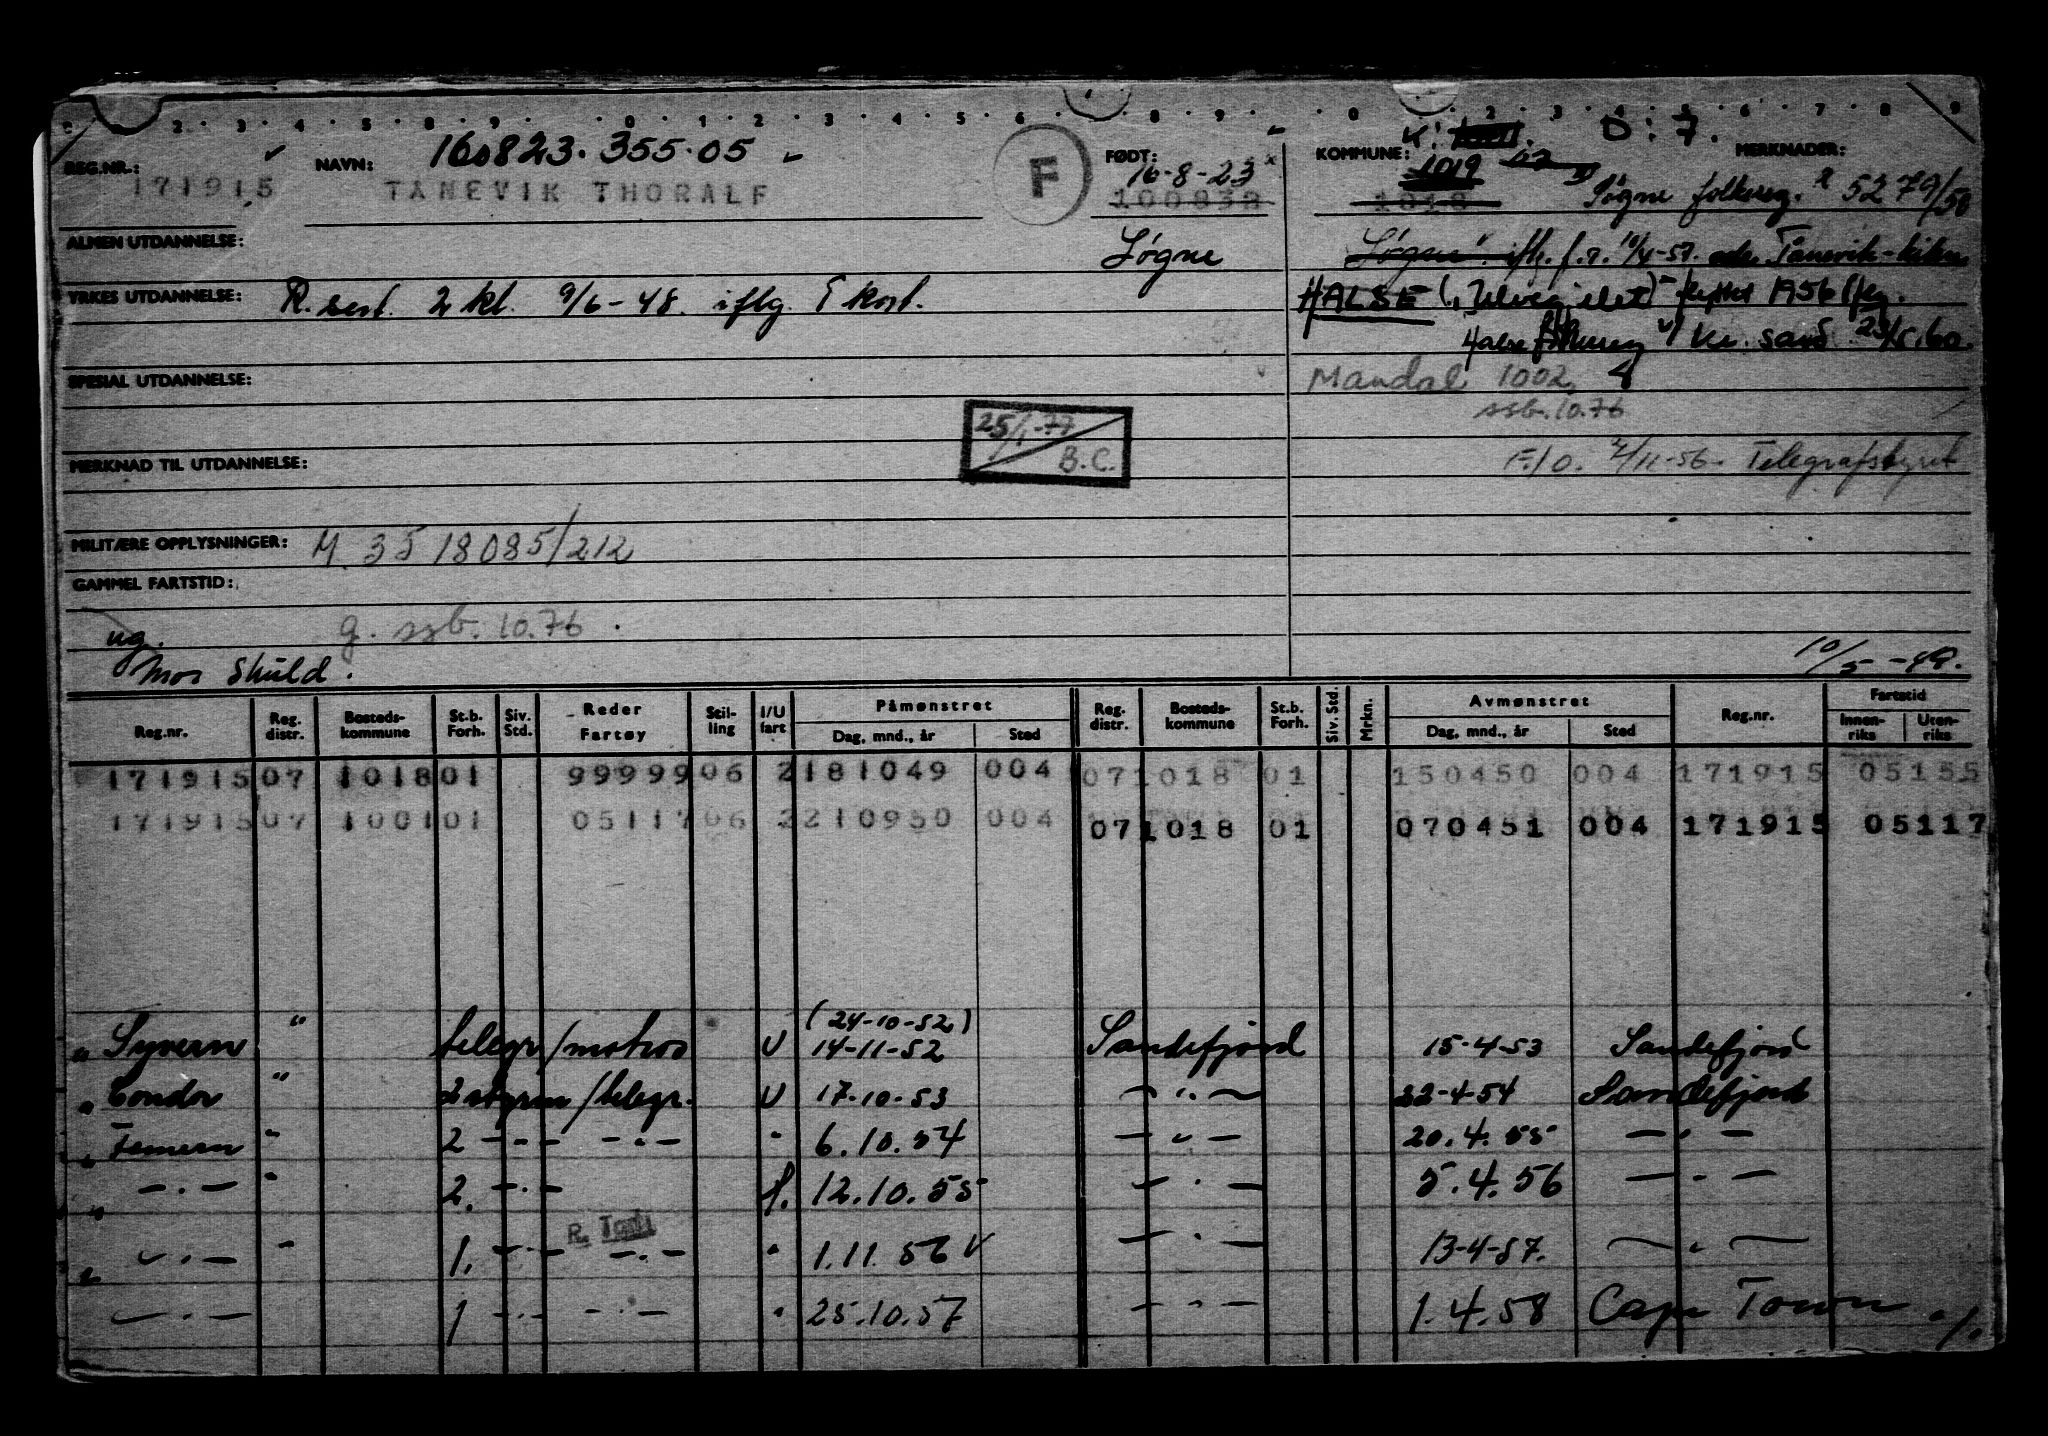 K: D: 7.
160823.355.05
REG.NR.: NAVN: F FØDT: KOMMUNE: 1019 MERKNADER:
171915 TÅNEVIK THORALF 16-8-23 100823 1018 Søgne folkereg. 5279/50
ALMEN UTDANNELSE: Søgne Søgne iflg. f.r. 10/4-57.
YRKES UTDANNELSE: R. sert. 2 kl. 9/6-48. iflg. T kort. HALSE flyttet 1956 iflg.
Halse folkereg v/ Kr. sand 23/5.60.
SPESIAL UTDANNELSE: Mandal 1002
ssb. 10.76
25/1-77
B.C.
MERKNAD TIL UTDANNELSE: F.l.o. 2/11-56. Telegrafstyret
MILITÆRE OPPLYSNINGER: M. 35 18085/212
GAMMEL FARTSTID:
g. ssb. 10.76.
ug.
mor Skuld. 10/5-49.
Reg.nr. Reg. distr. Bosteds-kommune St.b. Forh. Siv. Std. Reder Fartøy Stil-ling I/U fart Påmønstret Dag, mnd., år Sted Reg. distr. Bosteds-kommune St.b. Forh. Siv. Std. Mrkn. Avmønstret Dag, mnd., år Sted Reg.nr. Fartstid Innen-riks Uten-riks
171915 07 1018 01 99999 06 2 181049 004 07 1018 01 150450 004 171915 05155
171915 07 1001 01 05117 06 2 210950 004 07 1018 01 070451 004 171915 05117
(24-10-52)
" Syvern " telegr/matros U 14-11-52 Sandefjord 15-4-53 Sandefjord
" Condor " 2 styrm/telegr. U 17-10-53 — " — 22-4-54 Sandefjord
" Femern " 2 — " — — " — " 6.10.54 — " — 20.4.55 — " —
" — " — " 2. — " — f. 12.10.55 — " — 5.4.56 — " —
R. Todi
" — " — " 1. — " — — " — " 1.11.56 V — " — 13-4-57. — " —
— " — 1 — " — — " — " 25.10.57 — " — 1.4.58 Cape Town ./.